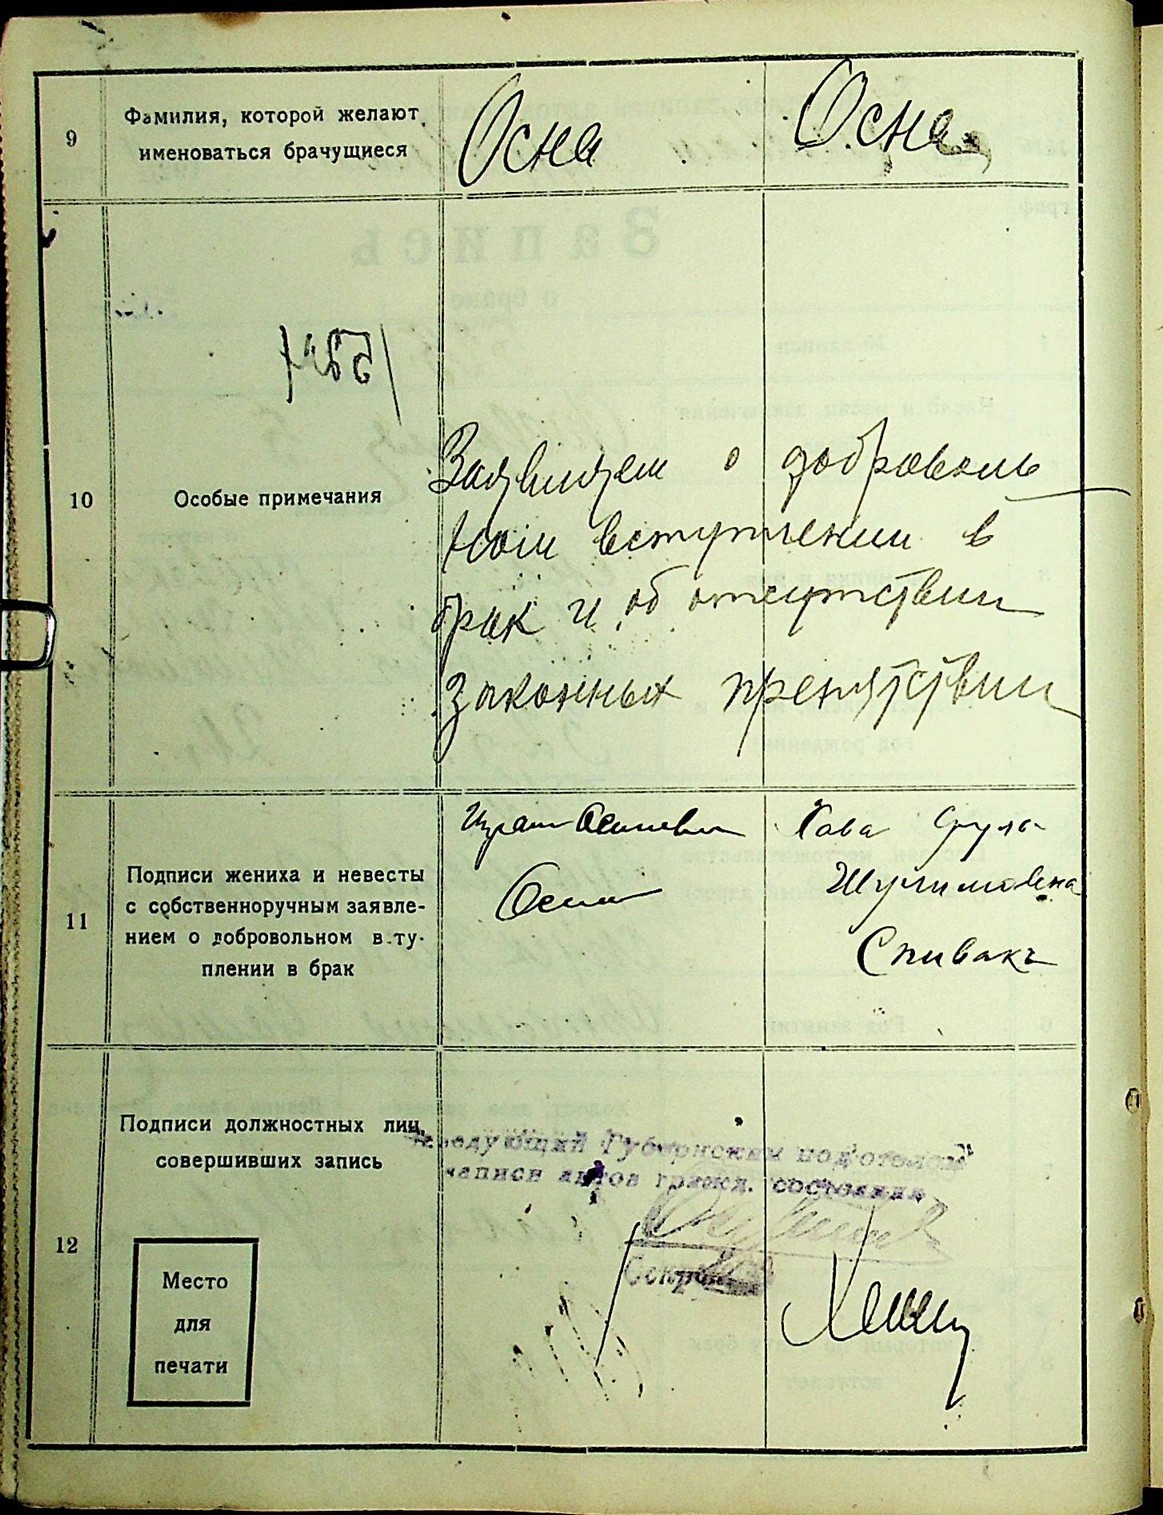 9
Фамилия, которой желают
именоваться брачущиеся
Осна
Осна
10
Особые примечания
Заявляем о доброволь
ном вступлении в
брак и об отсутствии
законных препятствии
11
Подписи жениха и невесты
с собственноручным заявле-
нием о добровольном в.ту-
плении в брак
Осна
Хава Сруля
Шулимовена
Спивакъ
12
Подписи должностных лиц,
совершивших запись
Заведующий Губернским подотделом
записи актов гражд. состояния
Секрет
Место
для
печати